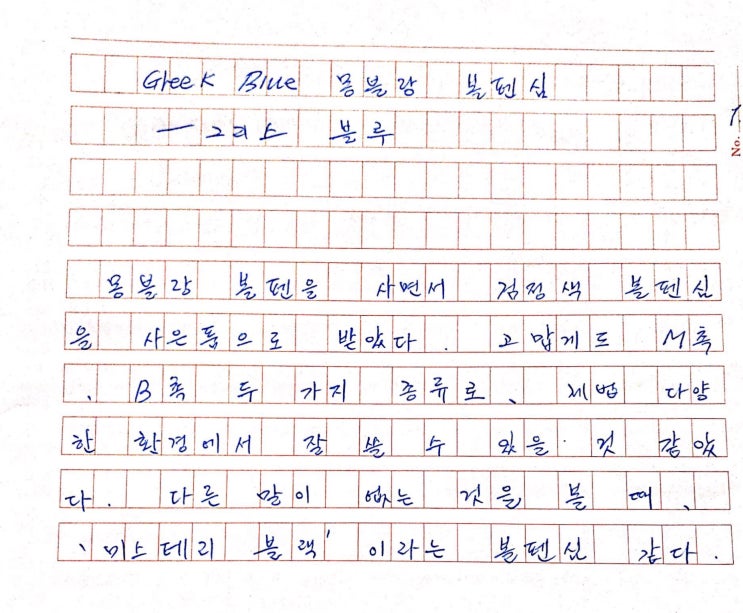 Greek Blue 몽블랑 볼펜심
— 그리스 블루
몽블랑 볼펜을 사면서 검정색 볼펜심
을 사은품으로 받았다. 고맙게도 M촉
, B촉 두 가지 종류로, 제법 다양
한 환경에서 잘 쓸 수 있을 것 같았
다. 다른 말이 없는 것을 볼 때,
'미스테리 블랙'이라는 볼펜심 같다.
No. 1